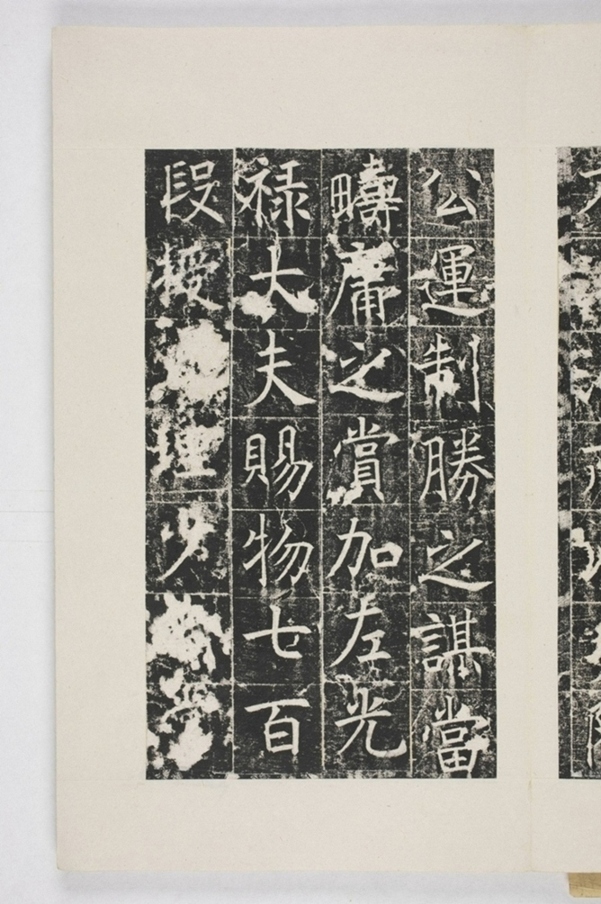 公運制勝之謀當
疇庸之賞加左光
禄大夫賜物七百
段授理少